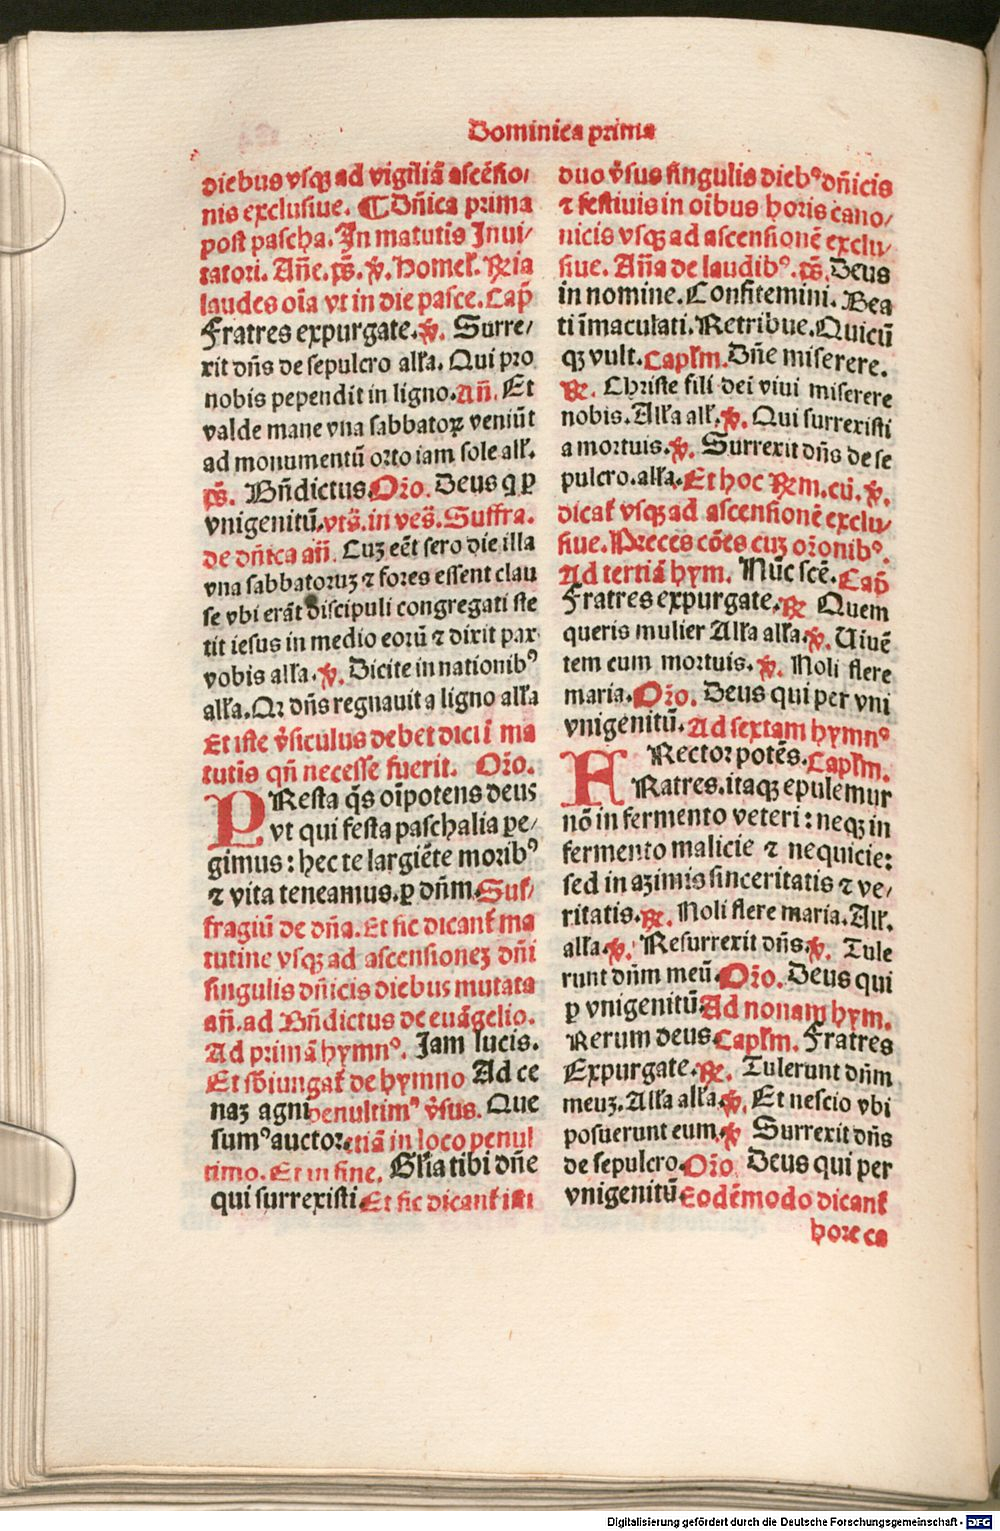 Dominica prima
diebus vsqꝫ ad vigiliā ascēsio/
nis exclusiue. ¶ Dñica prima
post pascha. In matutīs Inui/
tatori. Añe. p̄s. ꝟ. Homeł. ꝶ̄ia
laudes oīa vt in die pasce. Cap̄
Fratres expurgate. ꝟ. Surre/
xit dñs de sepulcro ałła. Qui pro
nobis pependit in ligno. añ. Et
valde mane vna sabbatoꝝ veniūt
ad monumentū orto iam sole ałł.
p̄s. Bñdictus. Oꝛ̄o. Deus q ꝑ
vnigenitū. vts̄. in ves̄. Suffra.
de dñica añ. Cuꝫ eēt sero die illa
vna sabbatoruꝫ ⁊ fores essent clau
se vbi erāt discipuli congregati ste
tit iesus in medio eorū ⁊ dixit pax
vobis ałła. ꝟ. Dicite in nationibꝰ
ałła. Qꝛ dñs regnauit a ligno ałła
Et iste v̄siculus debet dici ī ma
tutīs qñ necesse fuerit. Oꝛ̄o.
PResta q̄s oīpotens deus
vt qui festa paschalia ꝑe/
gimus: hec te largiēte moribꝰ
⁊ vita teneamus. ꝑ dñm. Suf/
fragiū de dña. Et sic dicant̄ ma
tutine vsqꝫ ad ascensioneꝫ dñi
singulis dñicis diebus mutata
añ. ad Bñdictus de euāgelio.
Ad primā hymnꝰ. Jam lucis.
Et sb̄iungat̄ de hymno Ad ce
naꝫ agni penultimꝰ v̄sus. Que
sumꝰ auctor. etiā in loco penul
timo. Et in fine. Głia tibi dñe
qui surrexisti. Et sic dicant̄ isti
duo v̄sus singulis diebꝰ dñicis
⁊ festiuis in oībus horis cano/
nicis vsqꝫ ad ascensionē exclu/
siue. Aña de laudibꝰ. p̄s. Deus
in nomine. Confitemini. Bea
ti īmaculati. Retribue. Quicū
qꝫ vult. Capłm. Dñe miserere.
ꝶ. Christe fili dei viui miserere
nobis. Ałła ałł. ꝟ. Qui surrexisti
a mortuis. ꝟ. Surrexit dñs de se
pulcro. ałła. Et hoc ꝶm. cū. ꝟ.
dicat̄ vsqꝫ ad ascensionē exclu/
siue. Preces cōes cuꝫ oꝛ̄onibꝰ.
Ad tertiā hym. Nūc scē. Cap̄
Fratres expurgate. ꝶ Quem
queris mulier Ałła ałła. ꝟ. Uiuē
tem cum mortuis. ꝟ. Noli flere
maria. Oꝛ̄o. Deus qui per vni
vnigenitū. Ad sextam hymnꝰ
Rector potēs. Capłm.
FRatres. itaqꝫ epulemur
nō in fermento veteri: neqꝫ in
fermento malicie ⁊ nequicie:
sed in azimis sinceritatis ⁊ ve/
ritatis. ꝶ. Noli flere maria. Ałł.
ałła. ꝟ. Resurrexit dñs. ꝟ. Tule
runt dñm meū. Oꝛ̄o. Deus qui
ꝑ vnigenitū. Ad nonam hym.
Rerum deus. Capłm. Fratres
Expurgate. ꝶ. Tulerunt dñm
meuꝫ. Ałła ałła. ꝟ. Et nescio vbi
posuerunt eum. ꝟ Surrexit dñs
de sepulcro. Oꝛ̄o Deus qui per
vnigenitū Eodēmodo dicant̄
hore ca
Digitalisierung gefördert durch die Deutsche Forschungsgemeinschaft - DFG